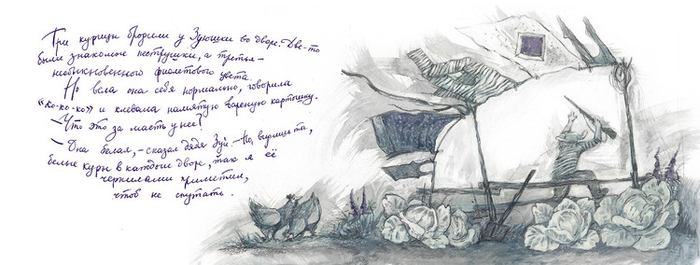 Три курицы бродили у Зуюшки во дворе. Две-то
были знакомые пеструшки, а третья –
необыкновенного фиолетового цвета.
Но вела она себя нормально, говорила
«ко-ко-ко» и клевала намятую вареную картошку.
– Что это за масть у нее?
– Она белая, – сказал дядя Зуй. – Но, вишь ты,
белые куры в каждом дворе, так я её
чернилами приметил,
чтоб не спутать.